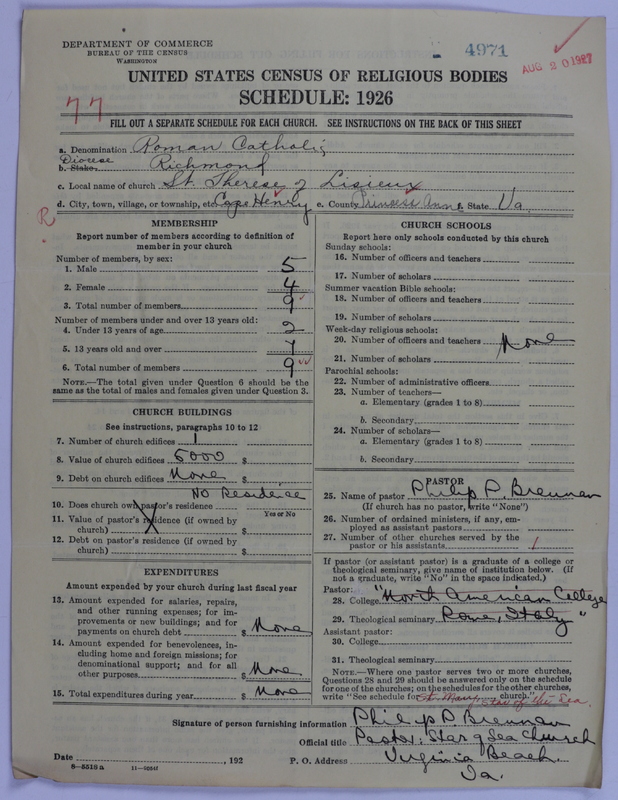 DEPARTMENT OF COMMERCE
BUREAU OF THE CENSUS
WASHINGTON
4971
AUG 20 1927
UNITED STATES CENSUS OF RELIGIOUS BODIES
SCHEDULE: 1926
77
FILL OUT A SEPARATE SCHEDULE FOR EACH CHURCH. SEE INSTRUCTIONS ON THE BACK OF THIS SHEET
a. Denomination Roman Catholic
Diocese
b. Stake. Richmond
c. Local name of church St. Therese of Lisieux
d. City, town, village, or township, etc. Cape Henry e. County Princess Anne State Va.
R
MEMBERSHIP
Report number of members according to definition of
member in your church
Number of members, by sex:
1. Male 5
2. Female 4
3. Total number of members 9
Number of members under and over 13 years old:
4. Under 13 years of age 2
5. 13 years old and over 7
6. Total number of members 9
NOTE.—The total given under Question 6 should be the
same as the total of males and females given under Question 3.
CHURCH BUILDINGS
See instructions, paragraphs 10 to 12
7. Number of church edifices 1
8. Value of church edifices 6000 $
9. Debt on church edifices None $
No Residence
10. Does church own pastor's residence
Yes or No
11. Value of pastor's residence (if owned by
church) $
12. Debt on pastor's residence (if owned by
church) $
EXPENDITURES
Amount expended by your church during last fiscal year
13. Amount expended for salaries, repairs,
and other running expenses; for im-
provements or new buildings; and for
payments on church debt $ None
14. Amount expended for benevolences, in-
cluding home and foreign missions; for
denominational support; and for all
other purposes $ None
15. Total expenditures during year $ None
CHURCH SCHOOLS
Report here only schools conducted by this church
Sunday schools:
16. Number of officers and teachers
17. Number of scholars
Summer vacation Bible schools:
18. Number of officers and teachers
19. Number of scholars
Week-day religious schools:
20. Number of officers and teachers None
21. Number of scholars
Parochial schools:
22. Number of administrative officers
23. Number of teachers—
a. Elementary (grades 1 to 8)
b. Secondary
24. Number of scholars—
a. Elementary (grades 1 to 8)
b. Secondary
PASTOR
25. Name of pastor Philip P. Brennan
(If church has no pastor, write "None")
26. Number of ordained ministers, if any, em-
ployed as assistant pastors
27. Number of other churches served by the
pastor or his assistants 1
If pastor (or assistant pastor) is a graduate of a college or
theological seminary, give name of institution below. (If
not a graduate, write "No" in the space indicated.)
Pastor:
28. College "North American College
29. Theological seminary Rome, Italy"
Assistant pastor:
30. College
31. Theological seminary
NOTE.—Where one pastor serves two or more churches,
Questions 28 and 29 should be answered only on the schedule
for one of the churches; on the schedules for the other churches,
write "See schedule for St. Mary, Star of the Sea church."
Signature of person furnishing information Philip P Brennan
Official title Pastor, Star of Sea Church
Date , 192 P. O. Address Virginia Beach
Va.
8-5518 a